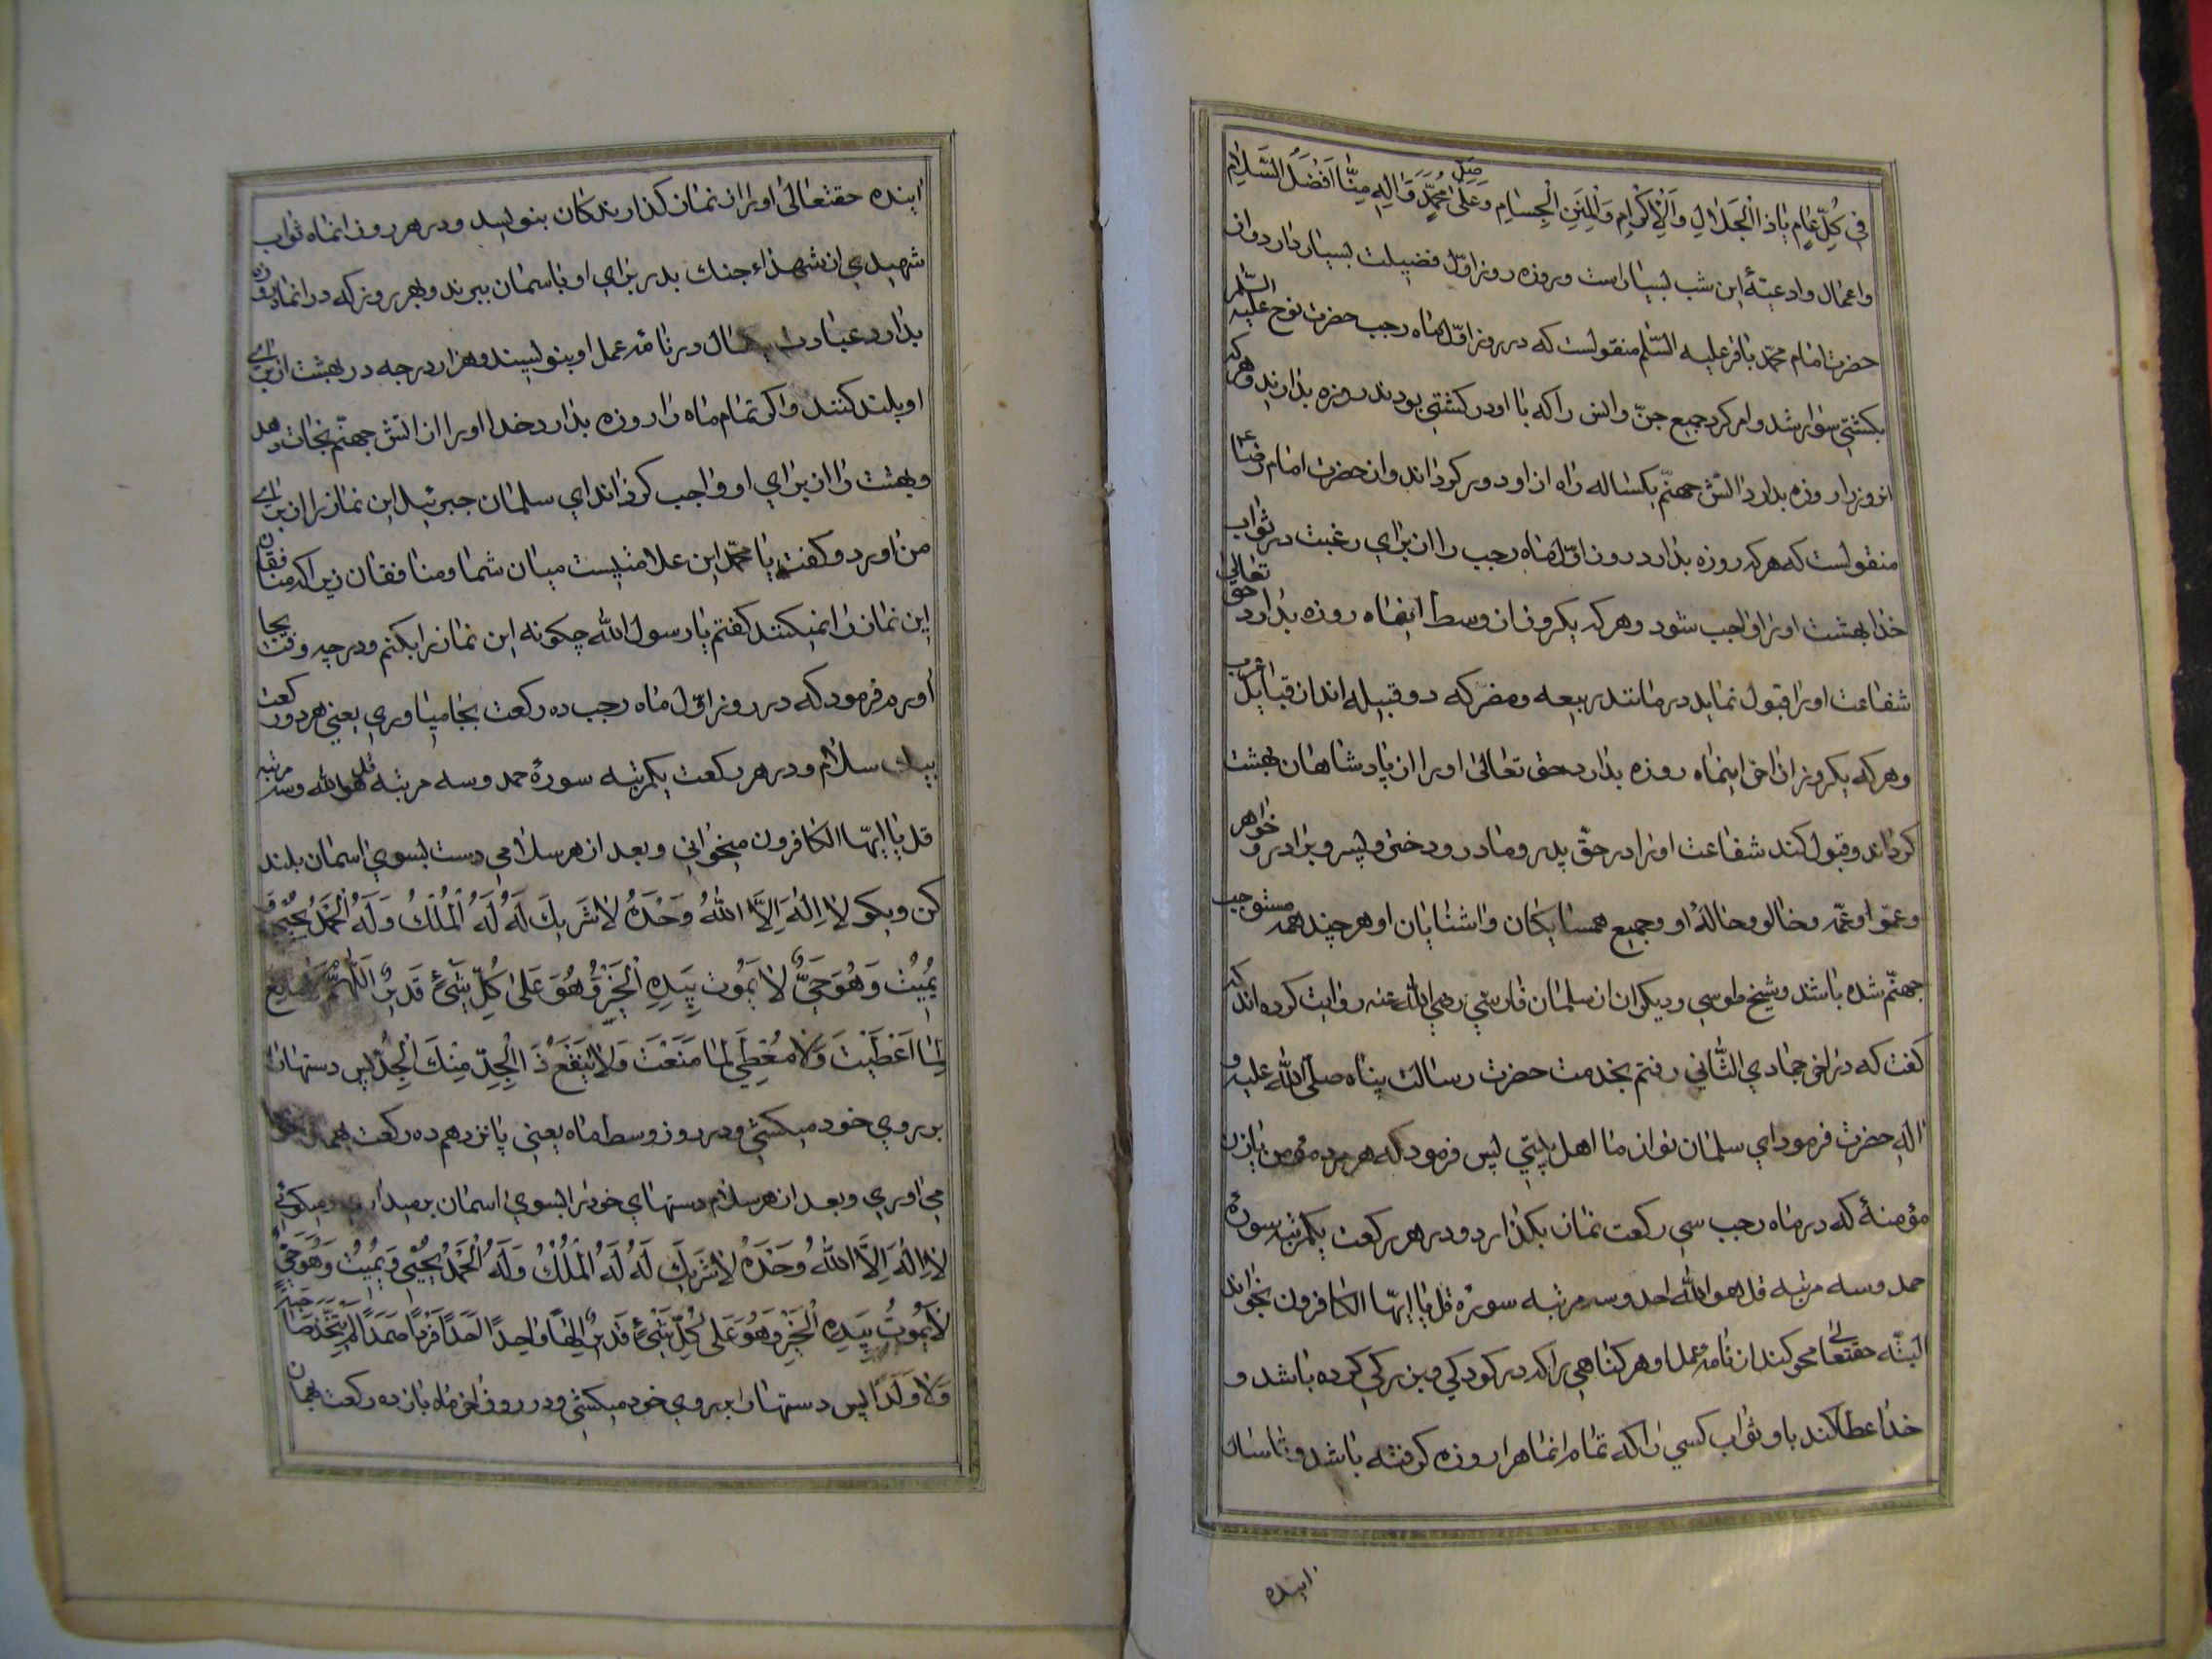 في كُلِّ عامٍ ياذا الْجَلالِ وَالْاِكْرامِ وَالْمِنَنِ الْجِسامِ وَصَلِّ عَلى مُحَمَّدٍ وَالِهِ مِنّا اَفْضَلَ السَّلامِ
واعمال وادعيهٔ اين شب بسياراست وروزه روز اوّل فضيلت بسيار دارد واز
حضرت امام محمّد باقر عليه السّلم منقولست كه در روز اوّل ماه رجب حضرت نوح عليه السّلم
بكشتي سوار شد وامر كرد جميع جنّ وانس را كه با او در كشتي بودند روزه بدارند وهر كه
انروز را روزه بدارد اتش جهنّم يكساله راه از او دور كرداند واز حضرت امام رضا ع
منقولست كه هر كه روزه بدارد روز اوّل ماه رجب را از براي رغبت در ثواب
خدا بهشت او را واجب شود وهر كه يكروز از وسط اينماه روزه بدارد حق تعالى
شفاعت او را قبول نمايد در مانند ربيعه ومضر كه دو قبيله اند از قبايل عرب
وهر كه يكروز از اخر اينماه روزه بدارد حق تعالى او را از پادشاهان بهشت
كرداند وقبول كند شفاعت او را در حقّ پدر ومادر ودختر وپسر وبرادر وخواهر
وعمّ او وعمّه وخالو وخالهٔ او وجميع همسايكان واشنايان او هر چند همه مستوجب
جهنّم شده باشد وشيخ طوسي وديكران از سلمان فارسي رضي الله عنه روايت كرده اند كه
كفت كه در اخر جمادي الثّاني رفتم بخدمت حضرت رسالت پناه صلّى الله عليه و
اله حضرت فرمود اي سلمان تو از ما اهل بيتي پس فرمود كه هر مرد مؤمن يا زن
مؤمنهٔ كه در ماه رجب سي ركعت نماز بكذارد ودر هر ركعت يكمرتبه سورهٔ
حمد وسه مرتبه قل هو الله احد وسه مرتبه سورهٔ قل يا ايّها الكافرون بخواند
البتّه حقتعالى محو كند از نامهٔ عمل او هر كناهي را كه در كودكي وبزركي كرده باشد و
خدا عطا كند باو ثواب كسي را كه تمام انماه را روزه كرفته باشد وتا سال
اينده
اينده حقتعالى او را از نماز كذارندكان بنويسد ودر هر روز انماه ثواب
شهيدي از شهداء جنك بدر براي او باسمان ببرند وبهر روز كه در انماه روزه
بدارد عبادت يكسال در نامهٔ عمل او بنويسند وهزار درجه در بهشت از براي
او بلند كنند واكر تمام ماه را روزه بدارد خدا او را از اتش جهنّم نجات دهد
وبهشت را از براي او واجب كرداند اي سلمان جبرئيل اين نماز را از براي
من اورد وكفت يا محمّد اين علامتيست ميان شما ومنافقان زيرا كه منافقان
اين نماز را نميكنند كفتم يا رسول الله چكونه اين نماز را بكنم ودر چه وقت بجا
اورم فرمود كه در روز اوّل ماه رجب ده ركعت بجا مياوري يعني هر دو ركعت
بيك سلام ودر هر ركعت يكمرتبه سورهٔ حمد وسه مرتبه قل هو الله وسه مرتبه
قل يا ايّها الكافرون ميخواني وبعد از هر سلامي دست بسوي اسمان بلند
كن وبكو لا اِلهَ اِلَّا اللهُ وَحْدَهُ لا شَريكَ لَهُ لَهُ الْمُلْكُ وَلَهُ الْحَمْدُ يُحْيي وَ
يُميتُ وَهُوَ حَيٌّ لا يَمُوتُ بِيَدِهِ الْخَيْرُ وَهُوَ عَلى كُلِّ شَيْءٍ قَديرٌ اَللّهُمَّ لا مانِعَ
لِما اَعْطَيْتَ وَلا مُعْطِيَ لِما مَنَعْتَ وَلا يَنْفَعُ ذَا الْجَدِّ مِنْكَ الْجَدُّ پس دستها را
بر روي خود ميكشي ودر روز وسط ماه يعني پانزدهم ده ركعت
مي اوري وبعد از هر سلام دستهاي خود را بسوي اسمان بر ميداري وميكوئي
لا اِلهَ اِلَّا اللهُ وَحْدَهُ لا شَريكَ لَهُ لَهُ الْمُلْكُ وَلَهُ الْحَمْدُ يُحْيي وَيُميتُ وَهُوَ حَيٌّ
لا يَمُوتُ بِيَدِهِ الْخَيْرُ وَهُوَ عَلى كُلِّ شَيْءٍ قَديرٌ اِلهًا واحِدًا اَحَدًا فَرْدًا صَمَدًا لَمْ يَتَّخِذْ صاحِبَةً
وَلا وَلَدًا پس دستها را بر روي خود ميكشي ودر روز اخر ماه باز ده ركعت بهمان